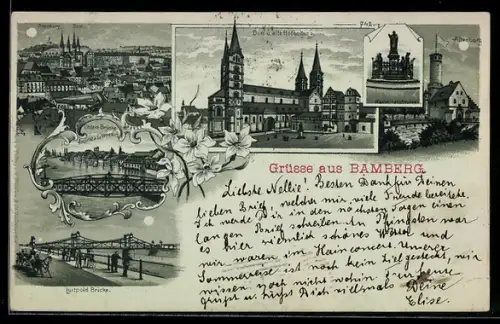 Bamberg.
Dom
Altenburg
Grüsse aus BAMBERG.
Luitpold Brücke.
Liebste Nellie! Besten Dank für Deinen
lieben Brief, welcher mir viele Freude bereitete.
Ich werde Dir in den nächsten Tagen einen
langen Brief schreiben. An Pfingsten war
es hier ziemlich schönes Wetter und
wir waren im Hainconcert. Unsere
Sommerreise ist noch kein Ziel gesteckt, wir
wissen noch nicht wohin. Für heute
grüßt u. küßt Dich vielmals Deine
Elise.